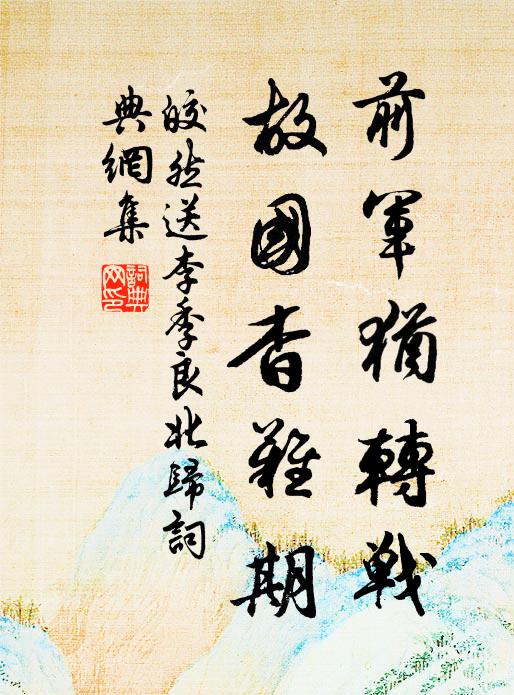 前軍猶轉戰
故國杳難期
皎然送李季良北歸詞
典網集
詞典
网印